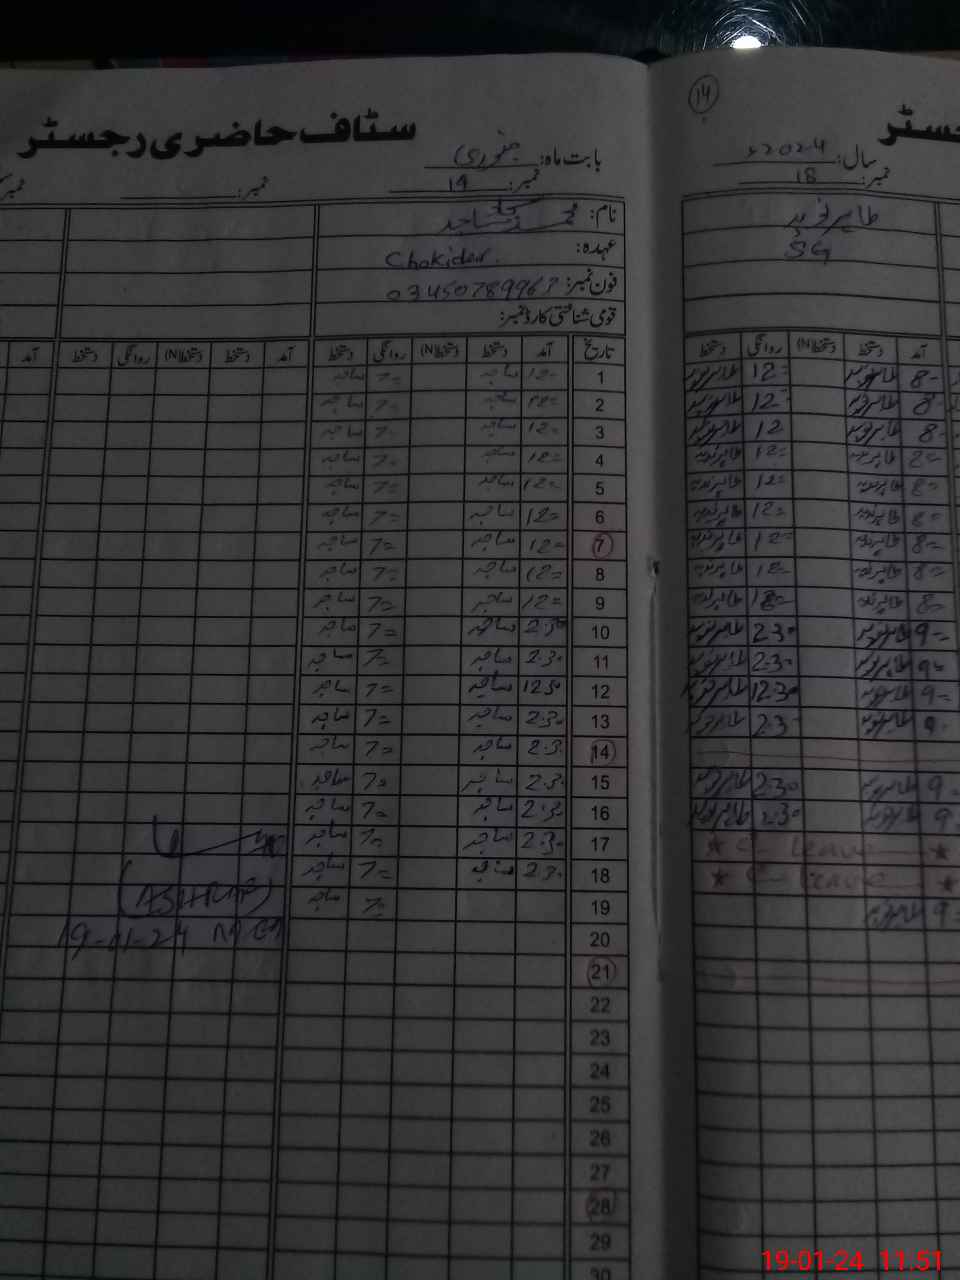 ۱۴
سٹاف حاضری رجسٹر
بابت ماہ: جنوری
نمبر: 19
نمبر:
سال: 2024ء
نمبر: 18
نام: محمد ساجد
عہدہ: Chokidar
فون نمبر:
قومی شناختی کارڈ نمبر:
طاہر نوید
SG
تاریخ آمد دستخط دستخط(N) روانگی دستخط آمد دستخط دستخط(N) روانگی دستخط آمد
آمد دستخط دستخط(N) روانگی دستخط
1 12= ساجد 7= ساجد 8= طاہر نوید 12= طاہر نوید
2 12= ساجد 7= ساجد 8= طاہر نوید 12= طاہر نوید
3 12= ساجد 7= ساجد 8= طاہر نوید 12 طاہر نوید
4 12= ساجد 7= ساجد 8= طاہر نوید 12= طاہر نوید
5 12= ساجد 7= ساجد 8= طاہر نوید 12= طاہر نوید
6 12= ساجد 7= ساجد 8= طاہر نوید 12= طاہر نوید
7 12= ساجد 7= ساجد 8= طاہر نوید 12= طاہر نوید
8 12= ساجد 7= ساجد 8= طاہر نوید 12= طاہر نوید
9 12= ساجد 7= ساجد 8= طاہر نوید طاہر نوید
10 2.30 ساجد 7= ساجد 9= طاہر نوید 2.30 طاہر نوید
11 2.30 ساجد 7= ساجد 9= طاہر نوید 2.30 طاہر نوید
12 12.30 ساجد 7= ساجد 9= طاہر نوید 12.30 طاہر نوید
13 2.30 ساجد 7= ساجد 9= طاہر نوید 2.30 طاہر نوید
14 2.30 ساجد 7= ساجد
15 2.30 ساجد 7= ساجد 9= طاہر نوید 2.30 طاہر نوید
16 2.30 ساجد 7= ساجد 9= طاہر نوید 2.30 طاہر نوید
17 2.30 ساجد 7= ساجد ★ C- leave ★
18 2.30 ساجد 7= ساجد ★ C- leave ★
19 7= ساجد 9= طاہر نوید
(ASHRAF)
19-01-24
20
21
22
23
24
25
26
27
28
29
30
19-01-24 11.51